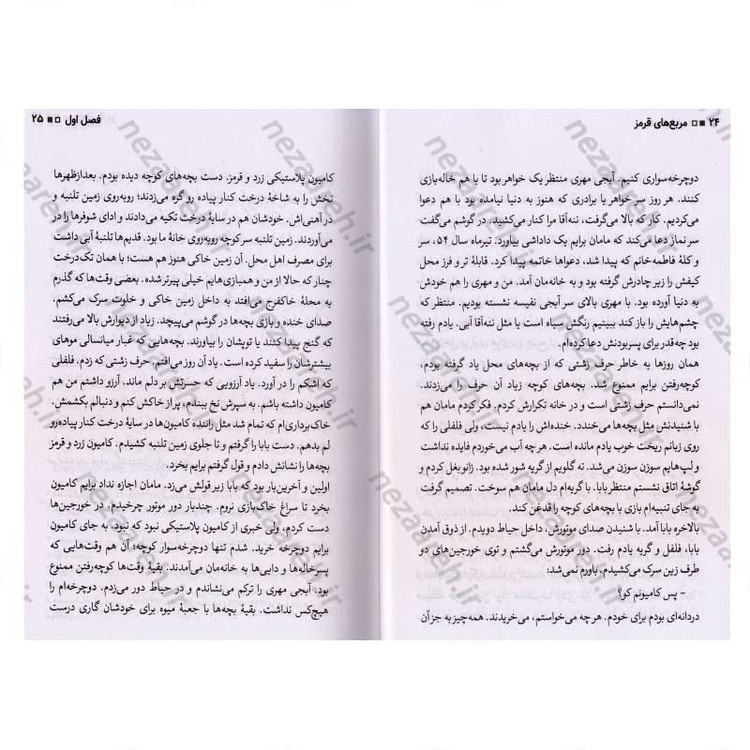 ۲۴ ■ □ مربع‌های قرمز
دوچرخه‌سواری کنیم. آبجی مهری منتظر یک خواهر بود تا با هم خاله‌بازی
کنند. هر روز سر خواهر یا برادری که هنوز به دنیا نیامده بود با هم دعوا
می‌کردیم. کار که بالا می‌گرفت، ننه‌آقا مرا کنار می‌کشید. در گوشم می‌گفت
سر نماز دعا می‌کند که مامان برایم یک داداشی بیاورد. تیرماه سال ۵۴، سر
و کلهٔ فاطمه‌خانم که پیدا شد، دعواها خاتمه پیدا کرد. قابلهٔ تر و فرز محل
کیفش را زیر چادرش گرفته بود و به خانه‌مان آمد. من و مهری را هم خودش
به دنیا آورده بود. با مهری بالای سر آبجی نفیسه نشسته بودیم. منتظر که
چشم‌هایش را باز کند ببینیم رنگش سیاه است یا مثل ننه‌آقا آبی. یادم رفته
بود چه‌قدر برای پسربودنش دعا کرده‌ام.
همان روزها به خاطر حرف زشتی که از بچه‌های محل یاد گرفته بودم،
کوچه‌رفتن برایم ممنوع شد. بچه‌های کوچه زیاد آن حرف را می‌زدند.
نمی‌دانستم حرف زشتی است و در خانه تکرارش کردم. فکر کردم مامان هم
با شنیدنش مثل بچه‌ها می‌خندد. خنده‌اش را یادم نیست، ولی فلفلی را که
روی زبانم ریخت خوب یادم مانده است. هر چه آب می‌خوردم فایده نداشت
و لپ‌هایم سوزن سوزن می‌شد. ته گلویم از گریه شور شده بود. زانو بغل کردم و
گوشهٔ اتاق نشستم منتظر بابا. با گریه‌ام دل مامان هم سوخت. تصمیم گرفت
به جای تنبیه‌ام بازی با بچه‌های کوچه را قدغن کند.
بالاخره بابا آمد. با شنیدن صدای موتورش، داخل حیاط دویدم. از ذوق آمدن
بابا، فلفل و گریه یادم رفت. دور موتورش می‌گشتم و توی خورجین‌های دو
طرف زین سرک می‌کشیدم، باورم نمی‌شد:
- پس کامیونم کو؟
دردانه‌ای بودم برای خودم. هر چه می‌خواستم، می‌خریدند. همه چیز به جز آن
فصل اول □ ■ ۲۵
کامیون پلاستیکی زرد و قرمز. دست بچه‌های کوچه دیده بودم. بعدازظهرها
نخش را به شاخهٔ درخت کنار پیاده رو گره می‌زدند؛ روبه‌روی زمین تلنبه و
در آهنی‌اش. خودشان هم در سایهٔ درخت تکیه می‌دادند و ادای شوفرها را در
می‌آوردند. زمین تلنبه سر کوچه روبه‌روی خانهٔ ما بود. قدیم‌ها تلنبهٔ آبی داشت
برای مصرف اهل محل. آن زمین خاکی هنوز هم هست؛ با همان تک‌درخت
چنار که حالا از من و همبازی‌هایم خیلی پیرتر شده. بعضی وقت‌ها که گذرم
به محلهٔ خاکفرج می‌افتد به داخل زمین خاکی و خلوت سرک می‌کشم.
صدای خنده و بازی بچه‌ها در گوشم می‌پیچد. زیاد از دیوارش بالا می‌رفتند
که گنج پیدا کنند یا توپشان را بیاورند. بچه‌هایی که غبار میانسالی موهای
بیشترشان را سفید کرده است. یاد آن روز می‌افتم. حرف زشتی که زدم. فلفلی
که اشکم را در آورد. یاد آرزویی که حسرتش بر دلم ماند. آرزو داشتم من هم
کامیون داشته باشم. به سپرش نخ ببندم، پر از خاکش کنم و دنبالم بکشمش.
خاک‌برداری‌ام که تمام شد مثل راننده کامیون‌ها در سایهٔ درخت کنار پیاده‌رو
لم بدهم. دست بابا را گرفتم و تا جلوی زمین تلنبه کشیدم. کامیون زرد و قرمز
بچه‌ها را نشانش دادم و قول گرفتم برایم بخرد.
اولین و آخرین‌بار بود که بابا زیر قولش می‌زد. مامان اجازه نداد برایم کامیون
بخرد تا سراغ خاک‌بازی نروم. چندبار دور موتور چرخیدم. در خورجین‌ها
دست کردم، ولی خبری از کامیون پلاستیکی نبود که نبود. به جای کامیون
برایم دوچرخه خرید. شدم تنها دوچرخه‌سوار کوچه؛ آن هم وقت‌هایی که
پسرخاله‌ها و دایی‌ها به خانه‌مان می‌آمدند. بقیهٔ وقت‌ها کوچه‌رفتن ممنوع
بود. آبجی مهری را ترکم می‌نشاندم و در حیاط دور می‌زدم. دوچرخه‌ام را
هیچ‌کس نداشت. بقیهٔ بچه‌ها با جعبهٔ میوه برای خودشان گاری درست
nezaareh.ir